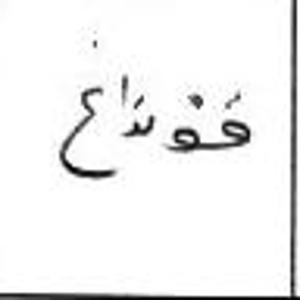 فَوْدَاغ